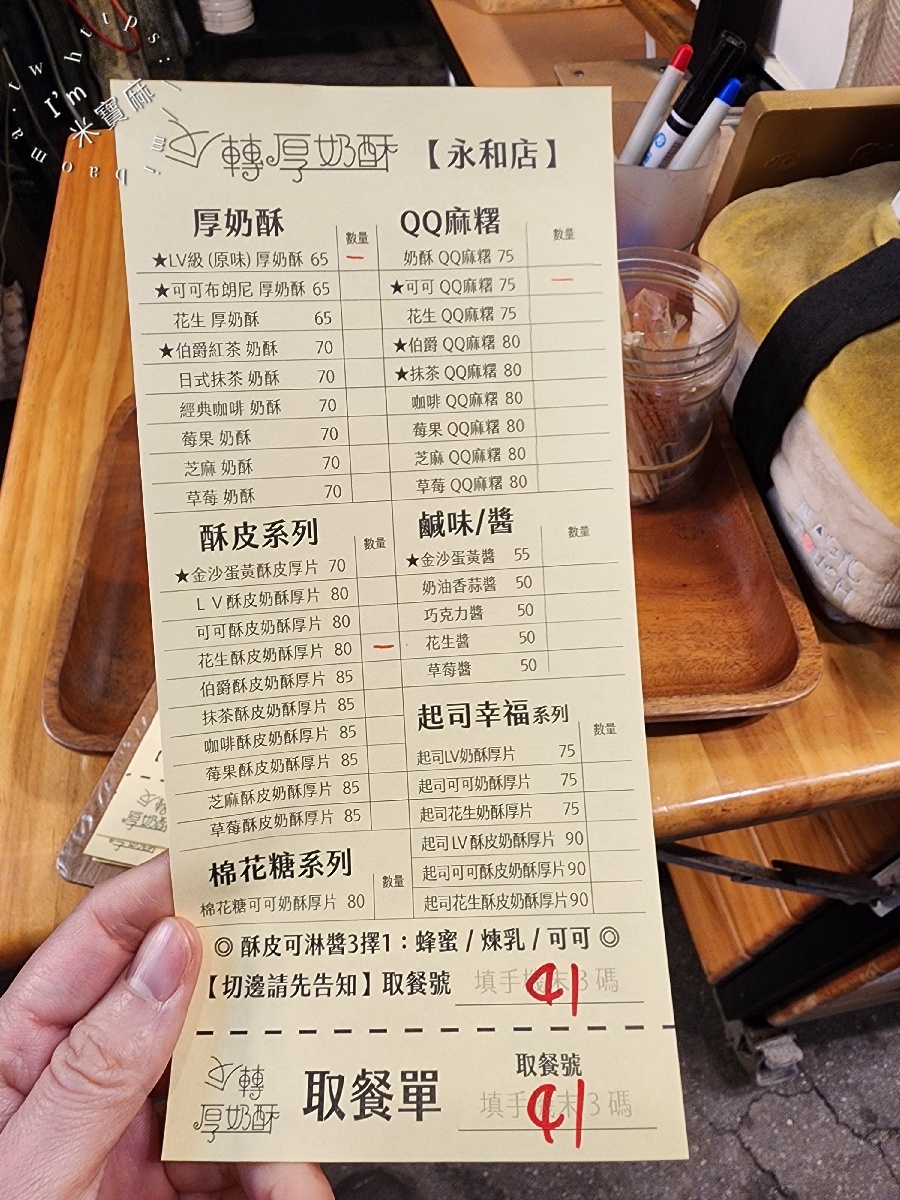 I'm
米寶麻
轉厚奶酥【永和店】
厚奶酥 數量
★LV級 (原味) 厚奶酥 65 一
★可可布朗尼 厚奶酥 65
花生 厚奶酥 65
★伯爵紅茶 奶酥 70
日式抹茶 奶酥 70
經典咖啡 奶酥 70
莓果 奶酥 70
芝麻 奶酥 70
草莓 奶酥 70
QQ麻糬 數量
奶酥 QQ麻糬 75
★可可 QQ麻糬 75 一
花生 QQ麻糬 75
★伯爵 QQ麻糬 80
★抹茶 QQ麻糬 80
咖啡 QQ麻糬 80
莓果 QQ麻糬 80
芝麻 QQ麻糬 80
草莓 QQ麻糬 80
酥皮系列 數量
★金沙蛋黃酥皮厚片 70
LV酥皮奶酥厚片 80
可可酥皮奶酥厚片 80
花生酥皮奶酥厚片 80 一
伯爵酥皮奶酥厚片 85
抹茶酥皮奶酥厚片 85
咖啡酥皮奶酥厚片 85
莓果酥皮奶酥厚片 85
芝麻酥皮奶酥厚片 85
草莓酥皮奶酥厚片 85
鹹味/醬 數量
★金沙蛋黃醬 55
奶油香蒜醬 50
巧克力醬 50
花生醬 50
草莓醬 50
起司幸福系列 數量
起司LV奶酥厚片 75
起司可可奶酥厚片 75
起司花生奶酥厚片 75
起司LV酥皮奶酥厚片 90
起司可可酥皮奶酥厚片90
起司花生酥皮奶酥厚片90
棉花糖系列 數量
棉花糖可可奶酥厚片 80
◎ 酥皮可淋醬3擇1：蜂蜜 / 煉乳 / 可可 ◎
【切邊請先告知】取餐號 填手機末3碼
41
轉
厚奶酥
取餐單
取餐號
填手機末3碼
41